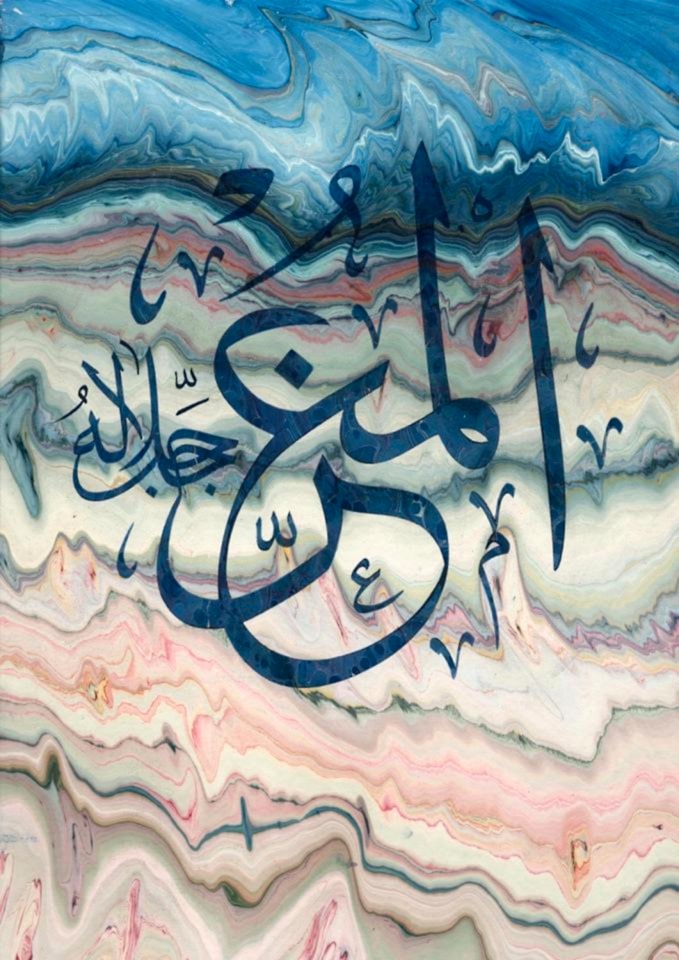 المعزّ
جَلَّ جلالهُ